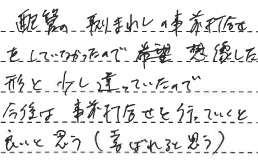 配管の取りまわしの事前打合せ
をしていなかったので希望想像した
形と少し違っていたので
今後は事前打合せを行っていくと
良いと思う(喜ばれると思う)